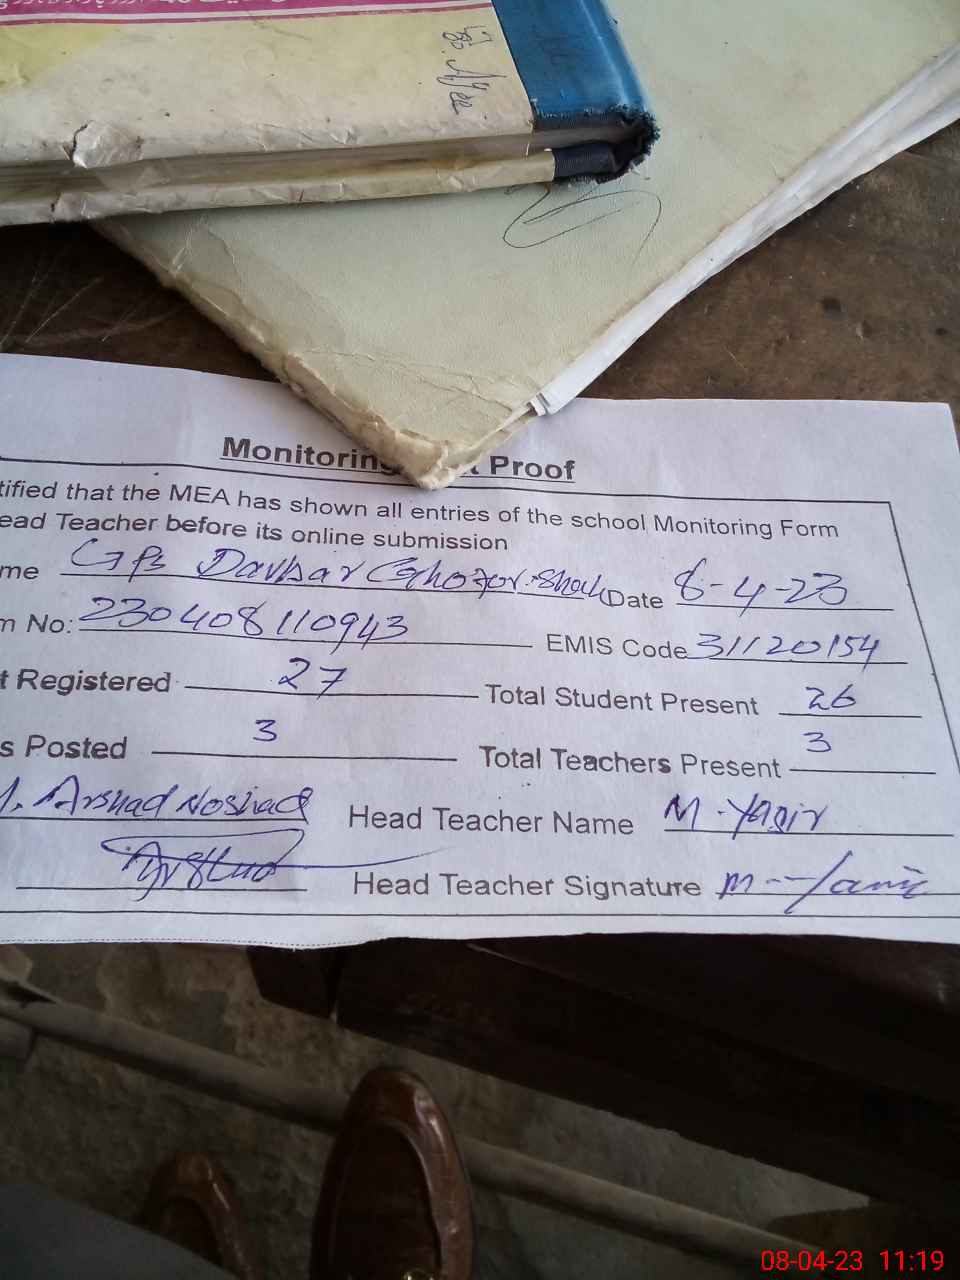 Monitoring Proof
tified that the MEA has shown all entries of the school Monitoring Form
ead Teacher before its online submission
me GPS Darbar Date 8-4-23
m No: 230408110943 EMIS Code 31120154
t Registered 27 Total Student Present 26
s Posted 3 Total Teachers Present 3
M. Arshad Noshad Head Teacher Name M. Yasir
Arshad Head Teacher Signature
08-04-23 11:19